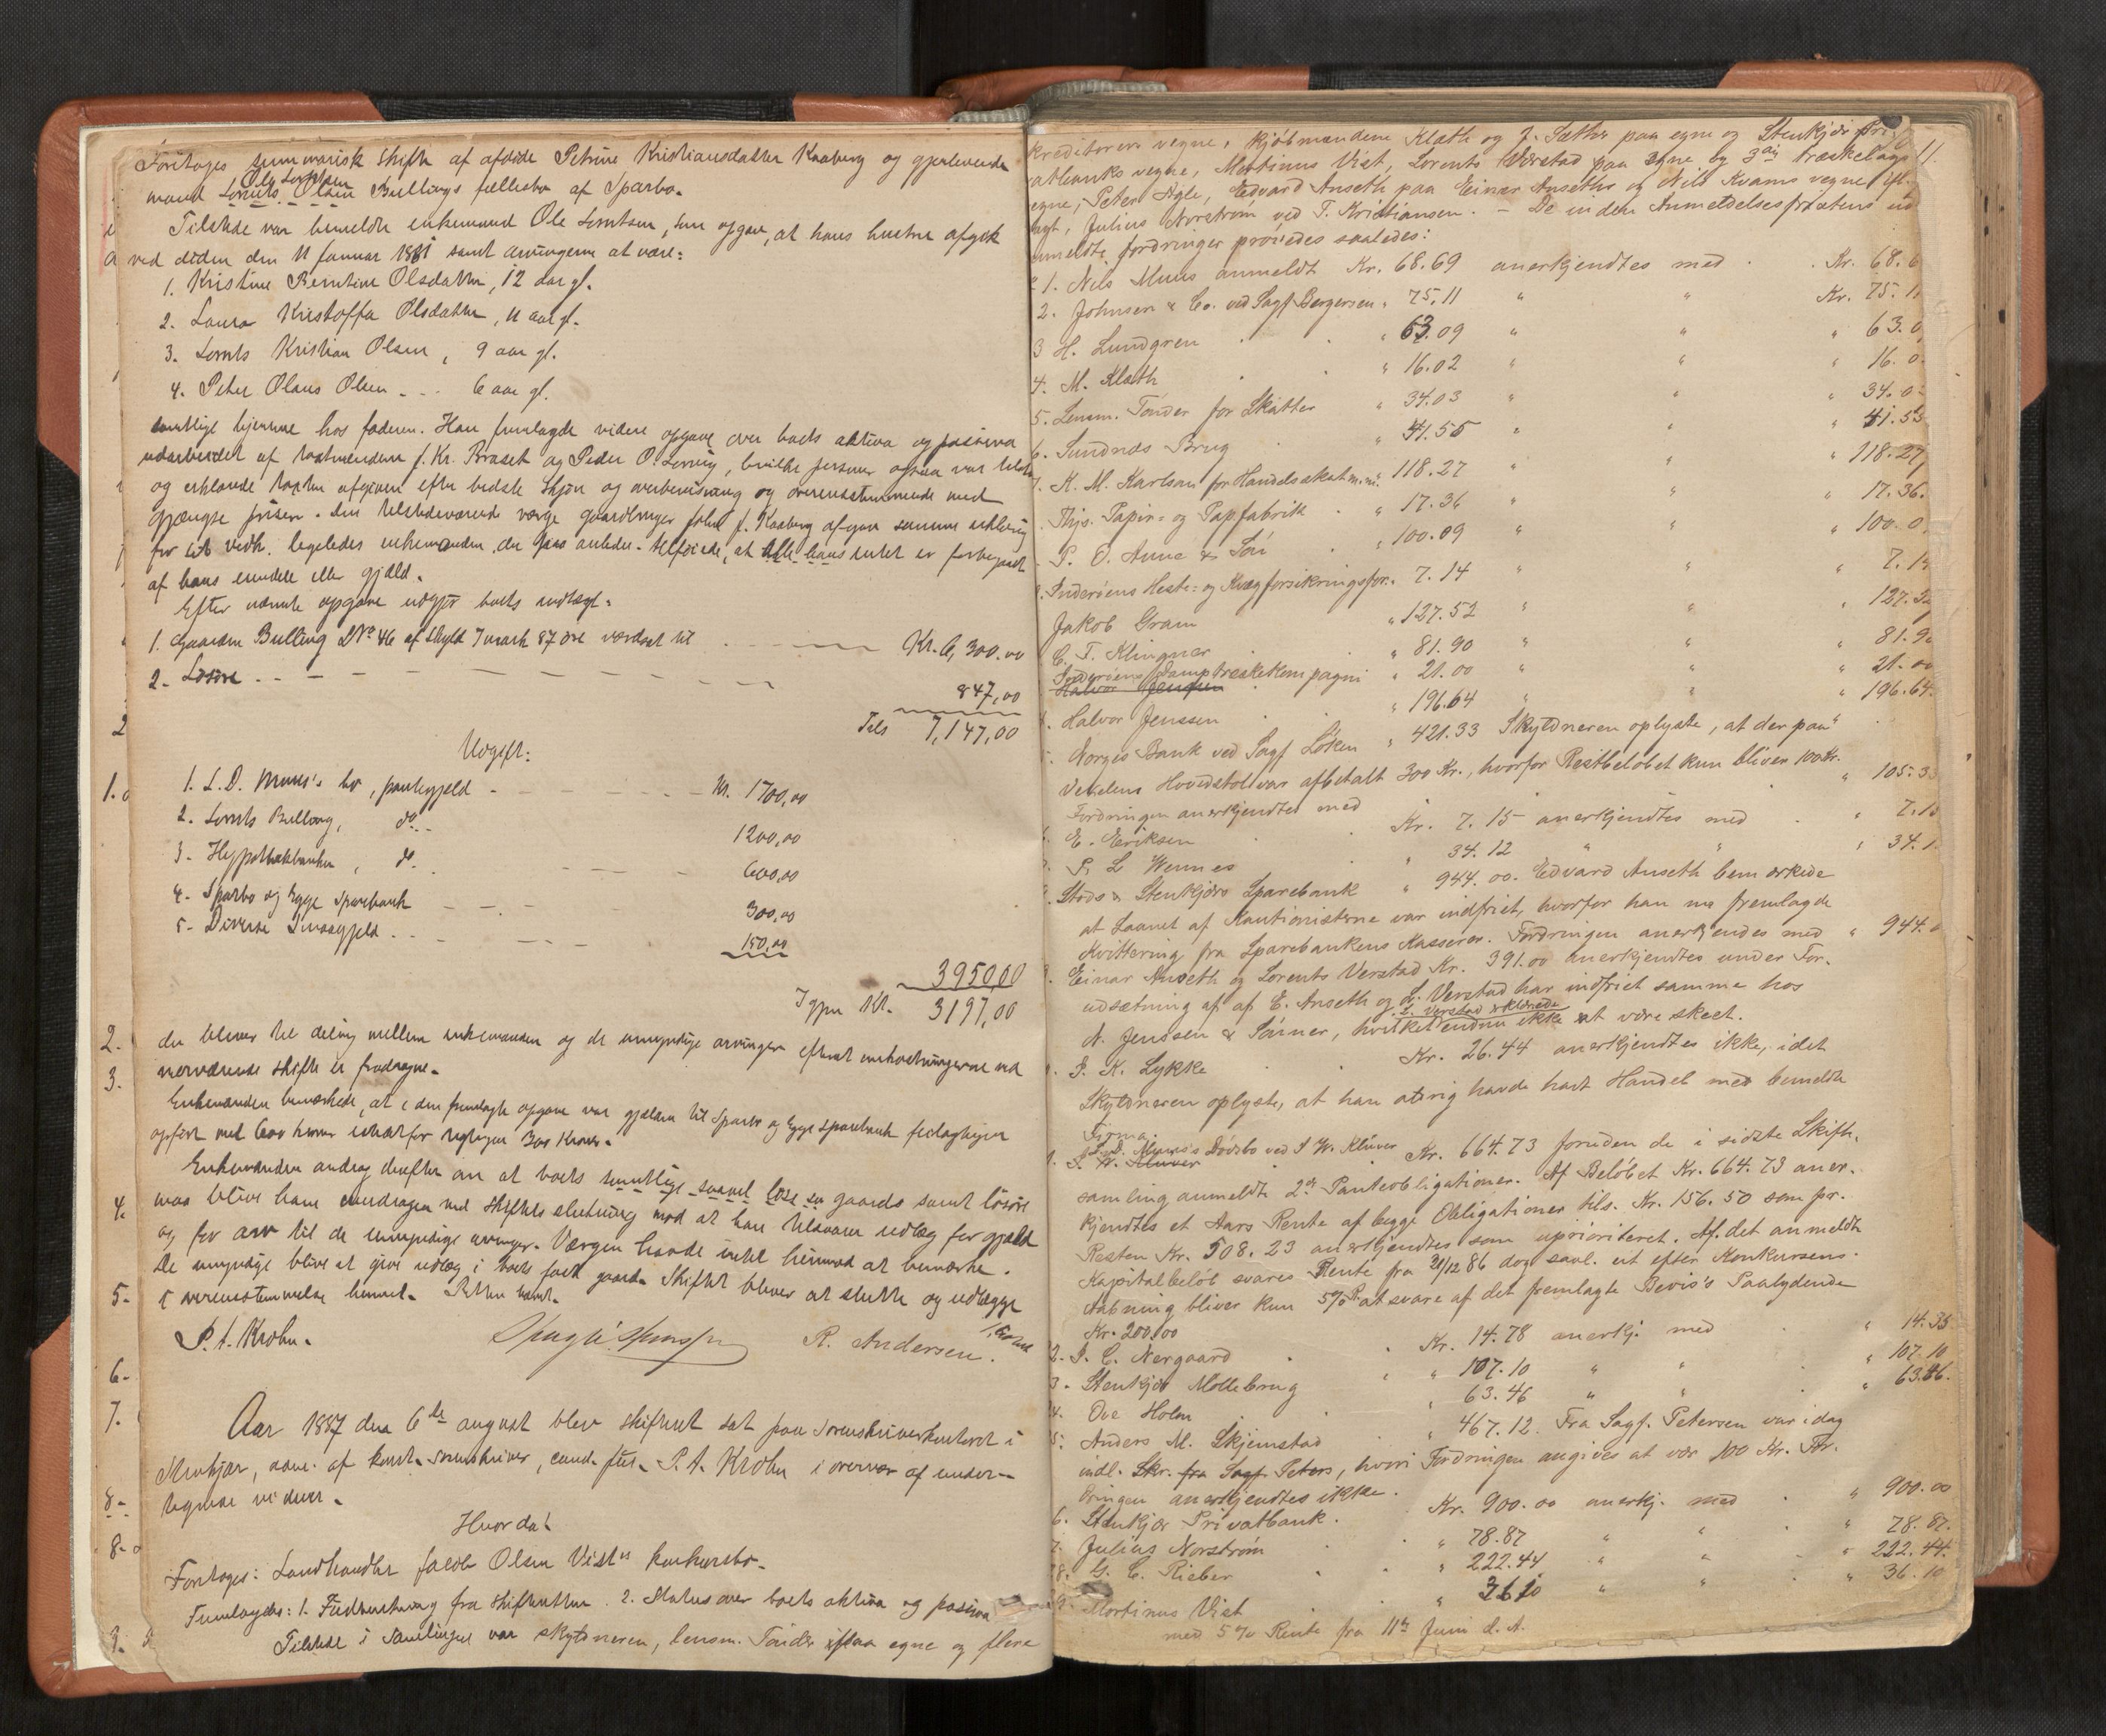 Foretoges summarisk skifte af afdøde Petrine Kristiansdatter Kaaberg og gjenlevende
Ole Lorntsen
mand Lornts Olsen Bullings fællesbo af Sparbo.
Tilstede var bemeldte enkemand Ole Lorntsen, som opgav, at hans hustru afgik
ved døden den 11 januar 1881 samt arvingerne at være:
1. Kristine Berntine Olsdatter, 12 aar gl.
2. Laura Kristoffa Olsdatter, 11 aar gl.
3. Lornts Kristian Olsen, 9 aar gl.
4. Peter Olaus Olsen - - - 6 aar gl.
samtlige hjemme hos faderen. Han fremlagde videre opgave over boets aktiva og passiva
udarbeidet af taxtmændene J. Kr. Braset og Peder O. , hvilke personer ogsaa var tilstede
og erklærede taxten afgiven efter bedste skjøn og overbevisning og overensstemmende med
gjængse priser. Den tilstedeværende værge gaardbruger John J. Kaaberg afgav samme erklæring
for sit vedk. ligeledes enkemanden, der paa anledn. tilføiede, at intet er forbigaaet
af hans eiendele eller gjæld.
Efter nævnte opgave udgjør boets indtægt.
1. Gaarden Bulling LNo 46 af skyld 7 mark 87 øre værdsat til Kr. 6,300.00
2. Løsøre - - - 847,00
Tils 7,147,00
Udgift:
1. L. D. Muus's bo, pantegjeld - - - Kr. 1700,00
2. Lornts Bulling, do. - 1200,00
3. Hypothekbanken, do. - - - 600,00
4. Sparbo og Egge Sparebank - - - 300,00
5. Diverse Smaagjeld - - - 150,00
3950,00
Igjen Kr. 3197,00
der bliver til deling mellem enkemanden og de umyndige arvinger efterat omkostningerne ved
nærværende skifte er fradragne.
Enkemanden bemærkede, at i den fremlagte opgave var gjælden til Sparbo og Egge sparebank feilagtigen
opført med 600 kroner istedetfor rigtigen 300 Kroner.
Enkemanden androg derefter om at boets samtlige saavel løse so gaards samt løsøre
maa blive ham inddragen ved skiftets slutning mod at han tilsvarer udlæg for gjæld
og for arv til de umyndige arvinger. Værgen havde intet herimod at bemærke.
De umyndige blive at give udlæg i boets faste gaard. Skiftet bliver at slutte og udlægge
i overensstemmelse hermed. Retten hævet.
P. A. Krohn. R. Andersen.
Aar 1887 den 6te august blev skifteret sat paa Sorenskriverkontoret i
Stenkjær, adm. af konst. Sorenskriver, cand. jur. P. A. Krohn i overvær af under-
tegnede vidner.
Hvorda!
Foretoges: Landhandler Jacob Olsen Vist's konkursbo.
Fremlagdes: 1. Fuldmægtig fra skifteretten. 2. Status over boets aktiva og passiva
Tilstede i Samlingen var skyldneren, lensm. Tønder paa egne og flere
11.
kreditorers vegne, kjøbmændene Klæth og J. Sæther paa egne og Stenkjær Pri-
vatbanks vegne, Martinus Vist, Lorents Verstad paa egne og 3die træskelags
egne, Peter Agle, Edvard Anseth paa Einar Anseths og Nils Kvams vegne ifl.
fuldmagt, Julius Norstrøm ved T. Kristiansen. – De inden Anmeldelsesfristens ud
anmeldte fordringer prøvedes saaledes:
1. Nils Muus anmeldt Kr. 68.69 anerkjendtes med Kr. 68.6
2. Johnsen & Co. ved Sagf. Bergersen " 75.11 " " Kr. 75.1
3 H. Lundgren " 63.09 " " " 63.0
4. M. Klæth " 16.02 " " " 16.0
5. Lensm. Tönder for Skatter " 34.03 " " " 34.0
6. Sundnæs Brug " 41.55 " " " 41.55
7. K. M. Karlsen for Handelsskat m.m. " 118.27 " " " 118.27
Thjs. Papir- og Papfabrik " 17.36 " " " 17.36.
P. O. Aune & Sön " 100.09 " " " 100.0
Inderöens Heste- og Kvægforsikringsfor. " 7.14 " " " 7.1
Jakob Gram " 127.52 " " " 127.52
C. F. Klingner " 81.90 " " " 81.9
Inderöens Damptræskekompagni " 21.00 " " " 21.00
Halvor Jenssen
Halvor Jenssen " 196.64 " " " 196.64
Norges Bank ved Sagf. Löken " 421.33 Skyldneren oplyste, at der paa
Vexelens Hovedstol var afbetalt 300 Kr., hvorfor Restbelöbet kun bliver 100 Kr.
Fordringen anerkjendtes med " 105.33
E. Eriksen Kr. 7.15 anerkjendtes med " 7.15
P. L. Wennes " 34.12 " " " 34.1
Stods & Stenkjærs Sparebank " 944.00. Edvard Anseth bemærkede
at Laanet af Kautionisterne var indfriet, hvorfor han nu fremlagde
Kvittering fra Sparebankens Kasserer. Fordringen anerkjendes med " 944.0
Einar Anseth og Lorents Verstad Kr. 391.00 anerkjendtes under For-
udsætning af af E. Anseth og L. Verstad har indfriet samme hos
L. Verstad erklærede
A. Jenssen & Sörner, hvilket endnu ikke at være skeet.
P. K. Lykke Kr. 26.44 anerkjendtes ikke, idet
Skyldneren oplyste, at han aldrig havde havt Handel med bemeldte
Firma.
L. D. Muus's Dödsbo ved I W. Klüver
I. W. Klüver Kr. 664.73 foruden de i sidste Skifte-
samling anmeldte 2de Panteobligationer. Af Belöbet Kr. 664.73 aner-
kjendtes et Aars Rente af begge Obligationer tils. Kr. 156.50 som pr.
Resten Kr. 508.23 anerkjendtes som uprioriteret. Af det anmeldte
Kapitalbelöb svares Rente fra 31/12 86 dog saal. at efter Konkursens
Aabning bliver kun 5% R. at svare af det fremlagte Bevis's Paalydende
Kr. 200.00
2. P. C. Nergaard Kr. 14.78 anerkj. med " 14.35
3. Stenkjær Möllebrug " 107.10 " " " 107.10
4. Ove Holm " 63.46 " " " 63.46.
5. Anders M. Skjemstad " 467.12. Fra Sagf. Petersen var idag
indl. Skr. fra Sagf. Peters, hvori Fordringen angives at vær 100 Kr. For-
dringen anerkjendtes ikke.
6. Stenkjær Privatbank. Kr. 900.00 anerkj. med " 900.00
7. Julius Norström " 78.87 " " " 78.87.
8. G. C. Rieber " 222.44 " " " 222.44.
9. Martinus Vist " 36.10 " " " 36.10
med 5% Rente fra 11te Juni d. A.